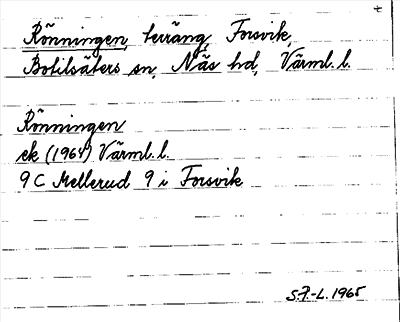 +
Rönningen, terräng, Forsvik,
Botilsäters sn, Näs hd, Värml. l.
Rönningen
ek (1964) Värml. l.
9 C Mellerud 9 i Forsvik
S.F.-L. 1965